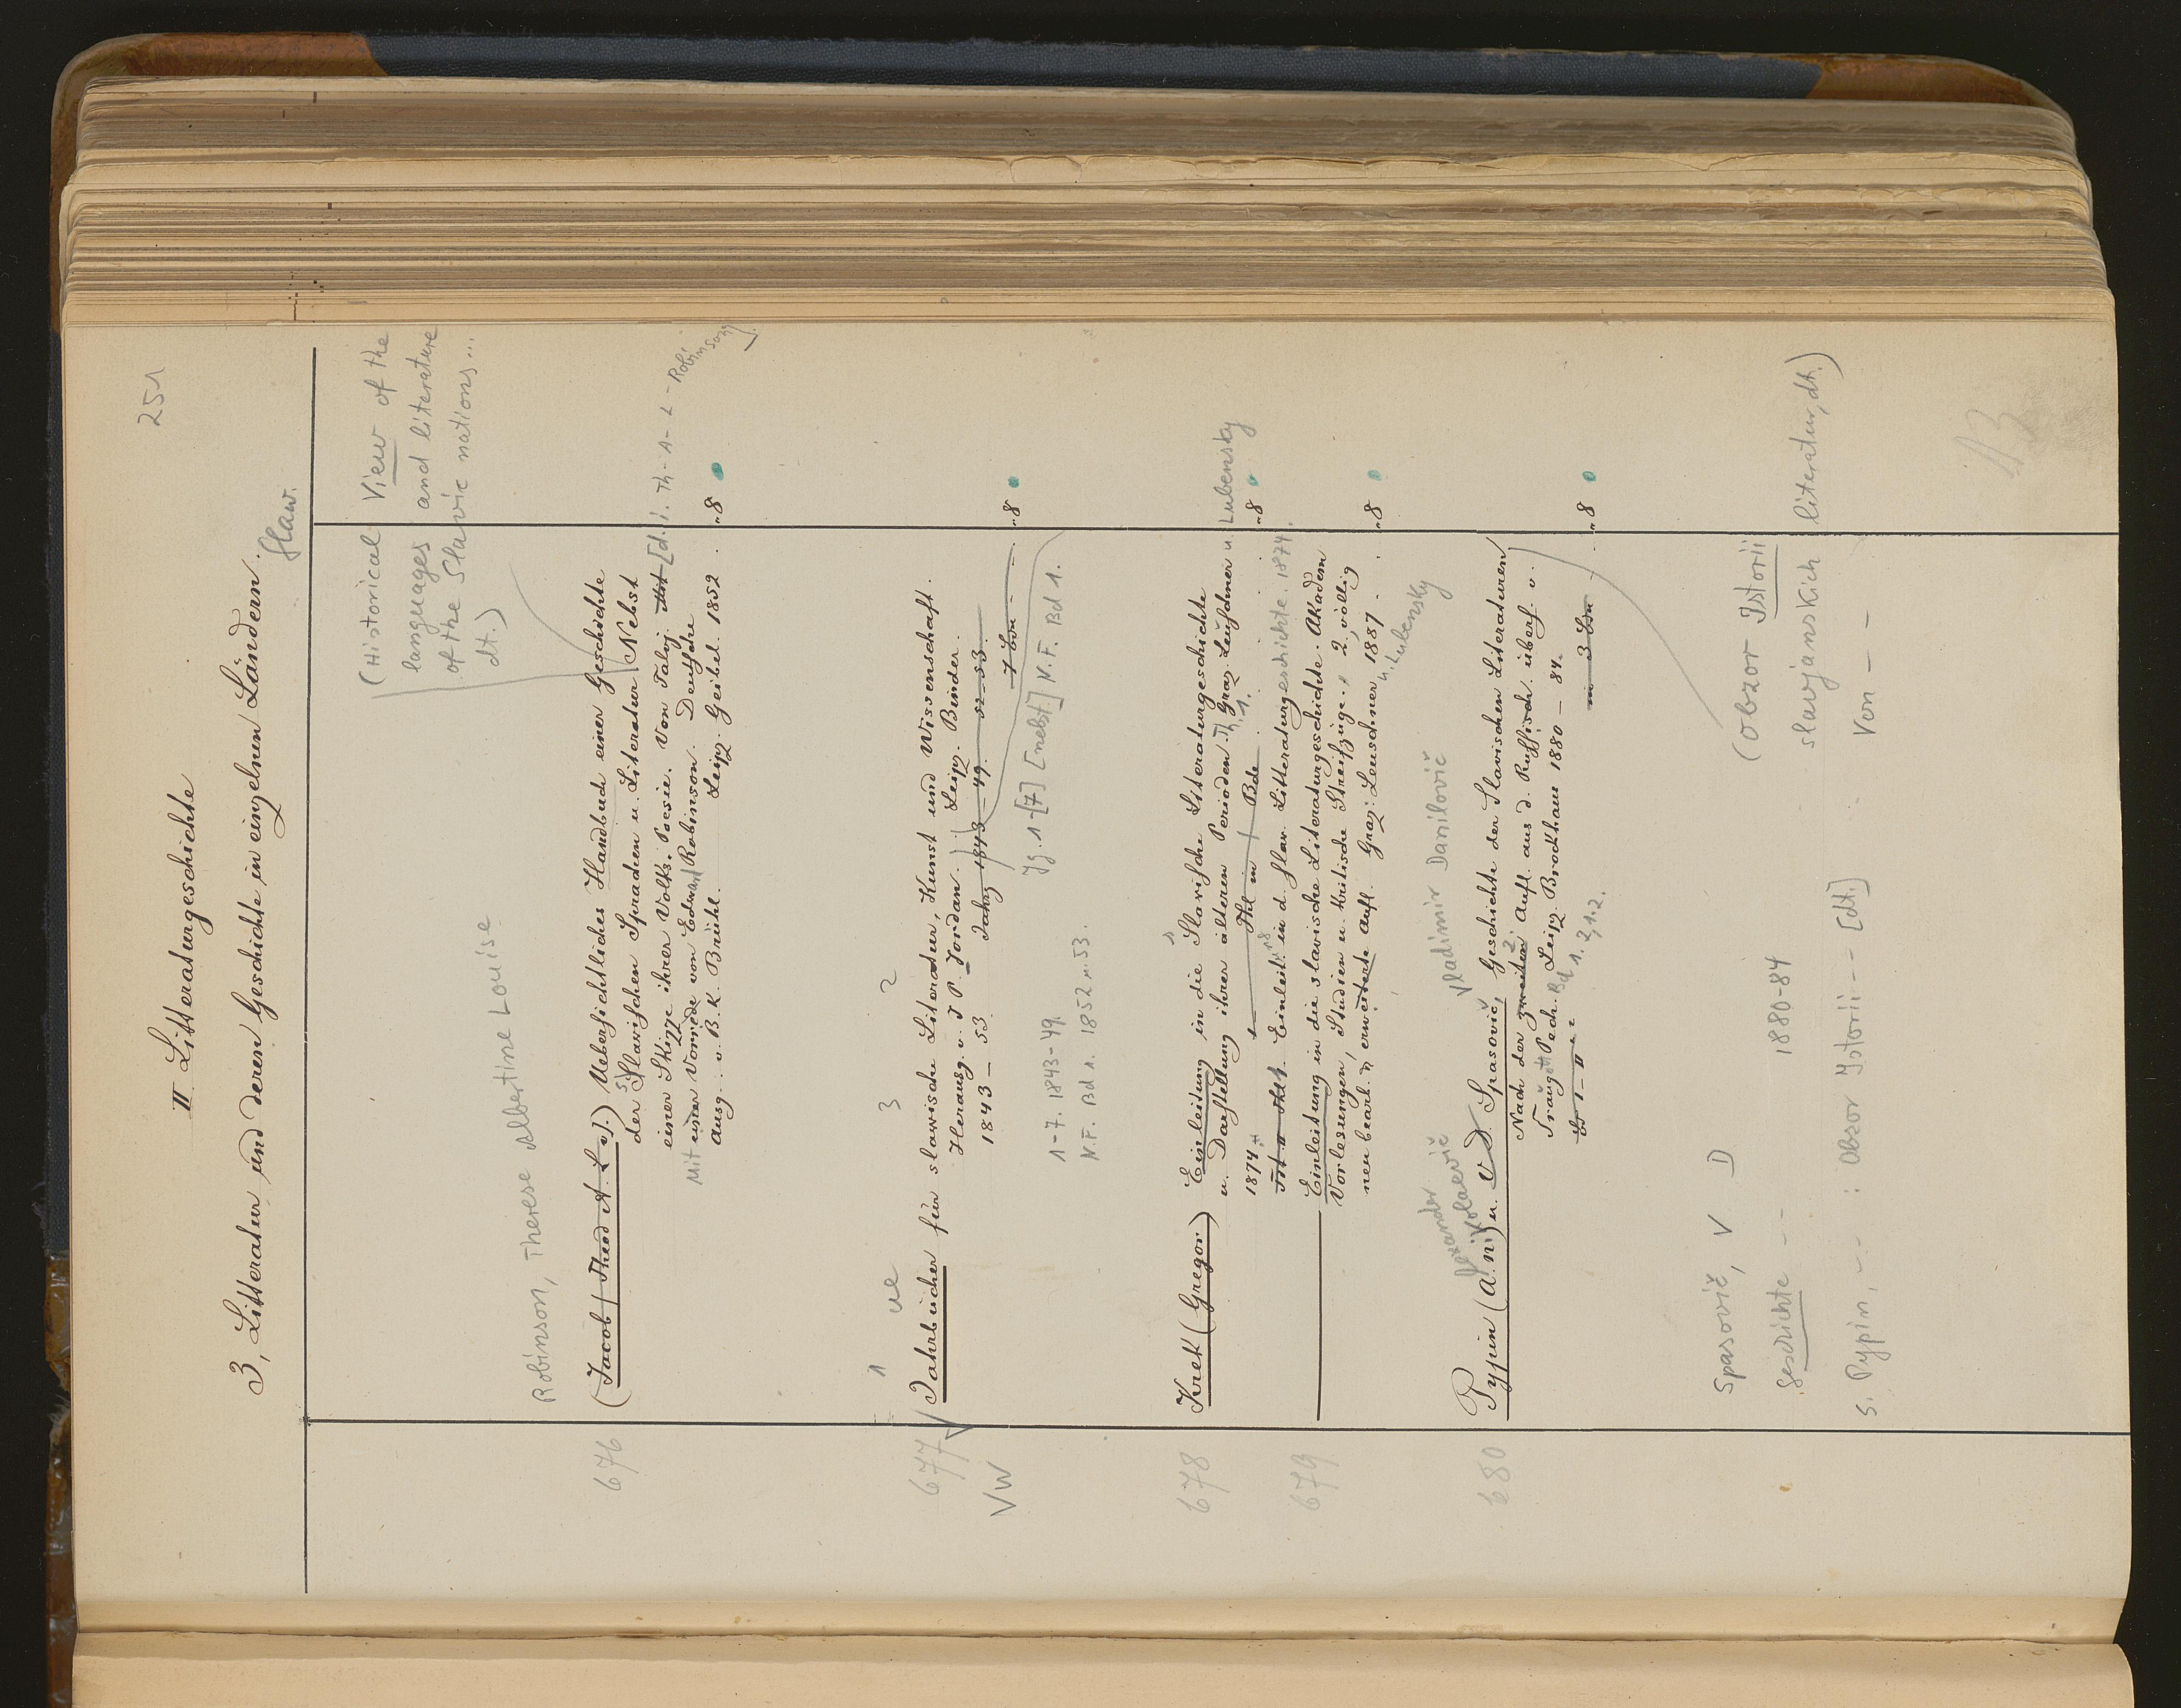 251
II Litteraturgeschichte
3, Litteratur und deren Geschichte in einzelnen Ländern.
Slaw.
(Historical View of the
languages and literature
of the Slavic nations...
dt.)
Robinson, Therese Albertine Louise
676 (Jacob (Thesd A. L. v).) Uebersichtliches Handbuch einer Geschichte
der Slavischen Sprachen u. Literatur Nebst
einer Skizze ihrer Volks-Poesie. Von Talvj. Mit [d. i. Th- A- L- Robinson].
Mit einer Vorrede von Edward Robinson. Deutsche
Ausg. v. B. K. Brühl. Leipz. Geibel. 1852. 8
1 ue 3 2
677 Jahrbücher für slawische Literatur, Kunst und Wissenschaft.
VW Herausg. v. J P. Jordan. Leipz. Binder.
1843 – 53 Jahrg 1843 – 49. 52–53.
7 Bde 8
Jg. 1-[7] [nebst] N.F. Bd 1.
1-7. 1843-49.
N.F. Bd 1. 1852 u. 53.
678 Krek (Gregor) Einleitung in die Slavische Literaturgeschichte
u. Darstellung ihrer älteren Perioden. Th. 1. Graz. Leuschner u. Lubensky
1874. 1 Thl in 1 Bde 8
Einleit. in d. slav. Litteraturgeschichte. 1874.
679 Einleitung in die slavische Literaturgeschichte. Akadem
Vorlesungen, Studien u. kritische Streifzüge. 2, völlig
neu bearb. u erweiterte Aufl. Graz: Leuschner 1887. 8
u. Lubensky
Alexander Nikolaevič
Vladimir Danilovič
680 Pypin (A. N.) u. V. D. Spasovič, Geschichte der Slavischen Literaturen
Nach der zweiten 2. Aufl. aus d. Russisch. übers. v.
Traugott Pech. Leipz. Brockhaus 1880 – 84.
Bd 1. 2,1.2.
Bd I – II in 3 Bdn 8
(Obzor Istorii
slavjanskich literatur, dt.)
Spasovič, V D
Geschichte - - 1880-84
Von - -
s. Pypin, - - : Obzor Istorii - - [dt.]
13